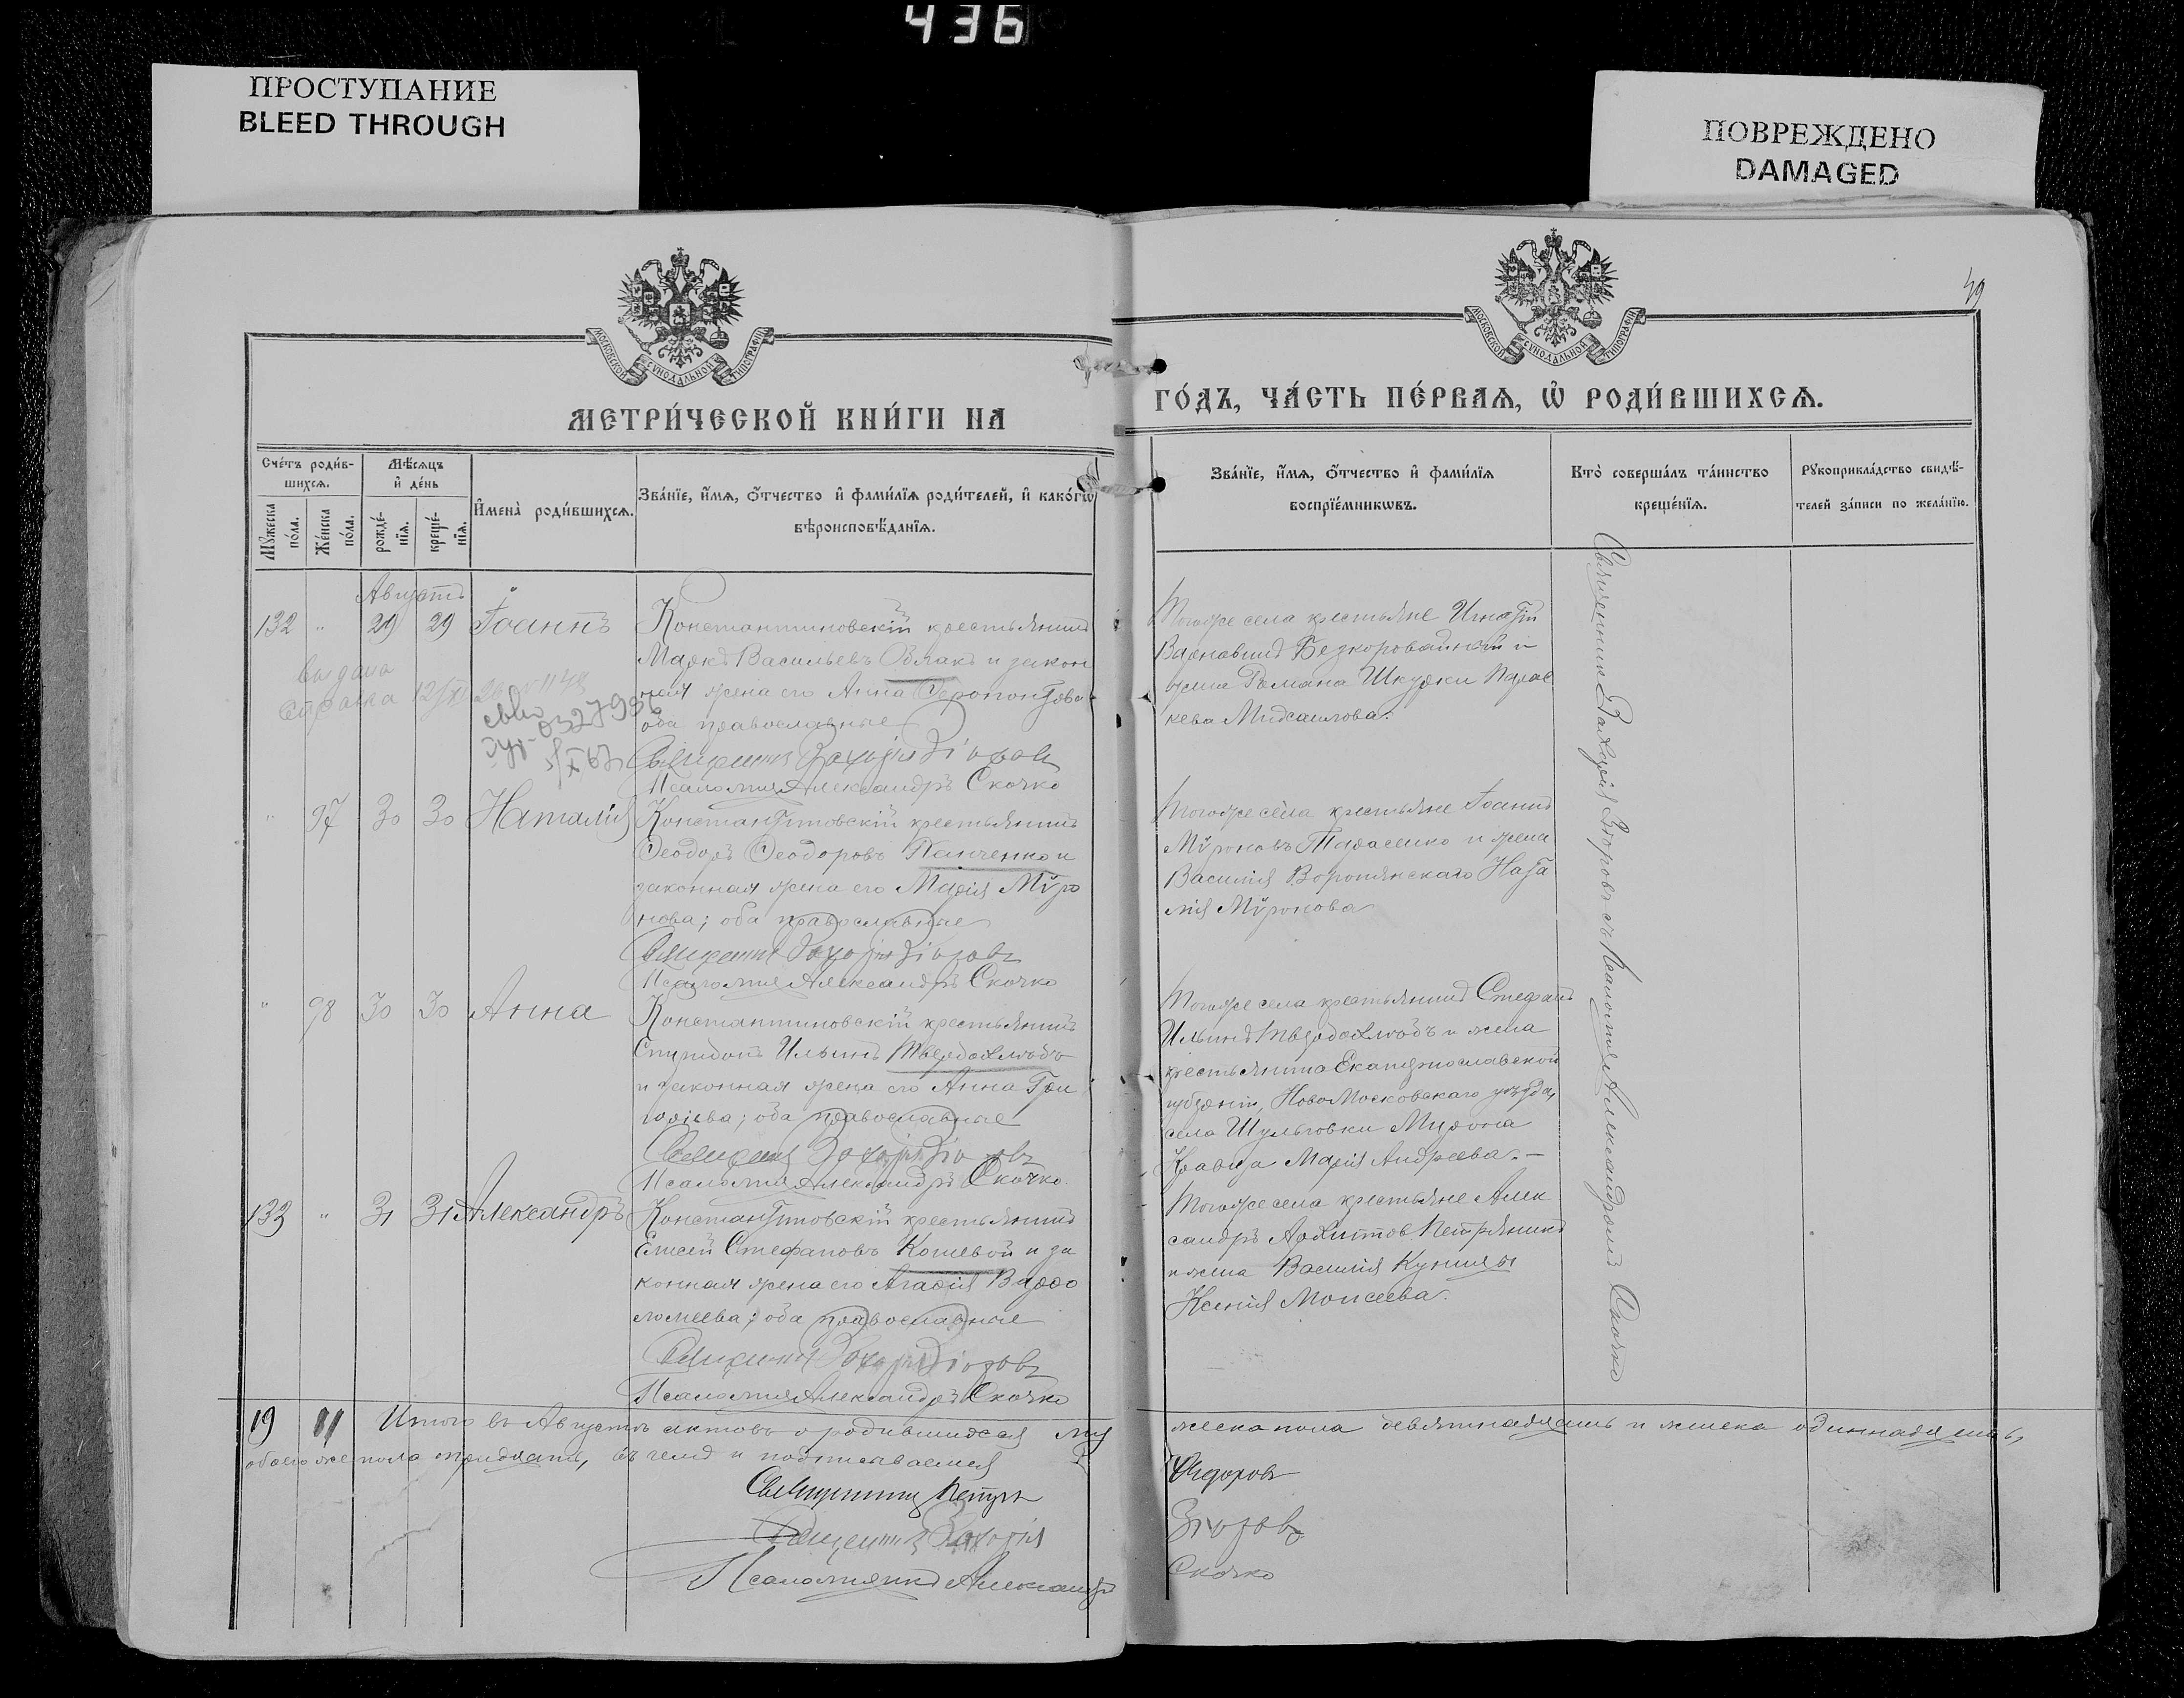 436
ПРОСТУПАНИЕ
BLEED THROUGH
ПОВРЕЖДЕНО
DAMAGED
49
МОСКОВСКОЙ СѴНОДАЛЬНОЙ ТИПОГРАФІИ
МОСКОВСКОЙ СѴНОДАЛЬНОЙ ТИПОГРАФІИ
МЕТРИ́ЧЕСКОЙ КНИ́ГИ НА
ГО́ДЪ, ЧА́СТЬ ПЕ́РВАѦ, Ѡ҆ РОДИ́ВШИХСѦ.
Сче́тъ роди́в-
шихсѧ.
Мѣ́сѧцъ
и҆ де́нь
Мꙋ́жеска по́ла.
Же́нска по́ла.
рожде́-
нїѧ.
креще́-
нїѧ.
И҆мена̀ роди́вшихсѧ.
Зва́нїе, и҆́мѧ, ѻ҆́тчество и҆ фами́лїѧ роди́телей, и҆ како́гѡ
вѣроисповѣ́данїѧ.
Зва́нїе, и҆́мѧ, ѻ҆́тчество и҆ фами́лїѧ
воспрїе́мникѡвъ.
Кто̀ соверша́лъ та́инство
креще́нїѧ.
Рꙋкоприкла́дство свидѣ́-
телей за́писи по жела́нїю.
Августъ
132 " 29 29 Іоаннъ
Константиновскій крестьянинъ
Маркъ Васильевъ Облакъ и закон
ная жена его Анна Ферапонтова
оба православные
Священникъ Захарія Зіоровъ
Псаломщикъ Александръ Скочко
Выдана
справка 12/XI
Тогоже села крестьяне Игнатій
Варнавинъ Безкоровайный и
жена Романа Шкурки Парас
кева Михаилова.
" 97 30 30 Наталія
Константиновскій крестьянинъ
Ѳеодоръ Ѳеодоровъ Панченко и
законная жена его Марія Мѵро
нова; оба православные
Священникъ Захарія Зіоровъ
Псаломщикъ Александръ Скочко
Тогоже села крестьяне Іоаннъ
Мѵроновъ Тарасенко и жена
Василія Воропянскаго Ната
лія Мѵронова
" 98 30 30 Анна
Константиновскій крестьянинъ
Спиридонъ Ильинъ Твердохлѣбъ
и законная жена его Анна Гри
горіева; оба православные
Священникъ Захарія Зіоровъ
Псаломщикъ Александръ Скочко.
Тогоже села крестьянинъ Стефанъ
Ильинъ Твердохлѣбъ и жена
крестьянина Екатеринославской
губерніи, НовоМосковскаго уѣзда,
села Шульговки Мирона
Кравца Марія Андреева.—
133 " 31 31 Александръ
Константиновскій крестьянинъ
Елисей Стефановъ Кошевой и за
конная жена его Агафія Варѳо
ломеева; оба православные
Священникъ Захарія Зіоровъ
Псаломщикъ Александръ Скочко
Тогоже села крестьяне Алек
сандръ Петряникъ
и жена Василія Куницы
Ксенія Моисеева.
Священникъ Захарія Зіоровъ съ Псаломщикомъ Александромъ Скочко
19 11 Итого въ Августѣ актовъ о родившихся му
жеска пола девятнадцать и женска одиннадцать,
обоего же пола тридцать, въ чемъ и подписываемся
Священникъ Петръ Сидоровъ
Священникъ Захарія Зіоровъ
Псаломщикъ Александръ Скочко